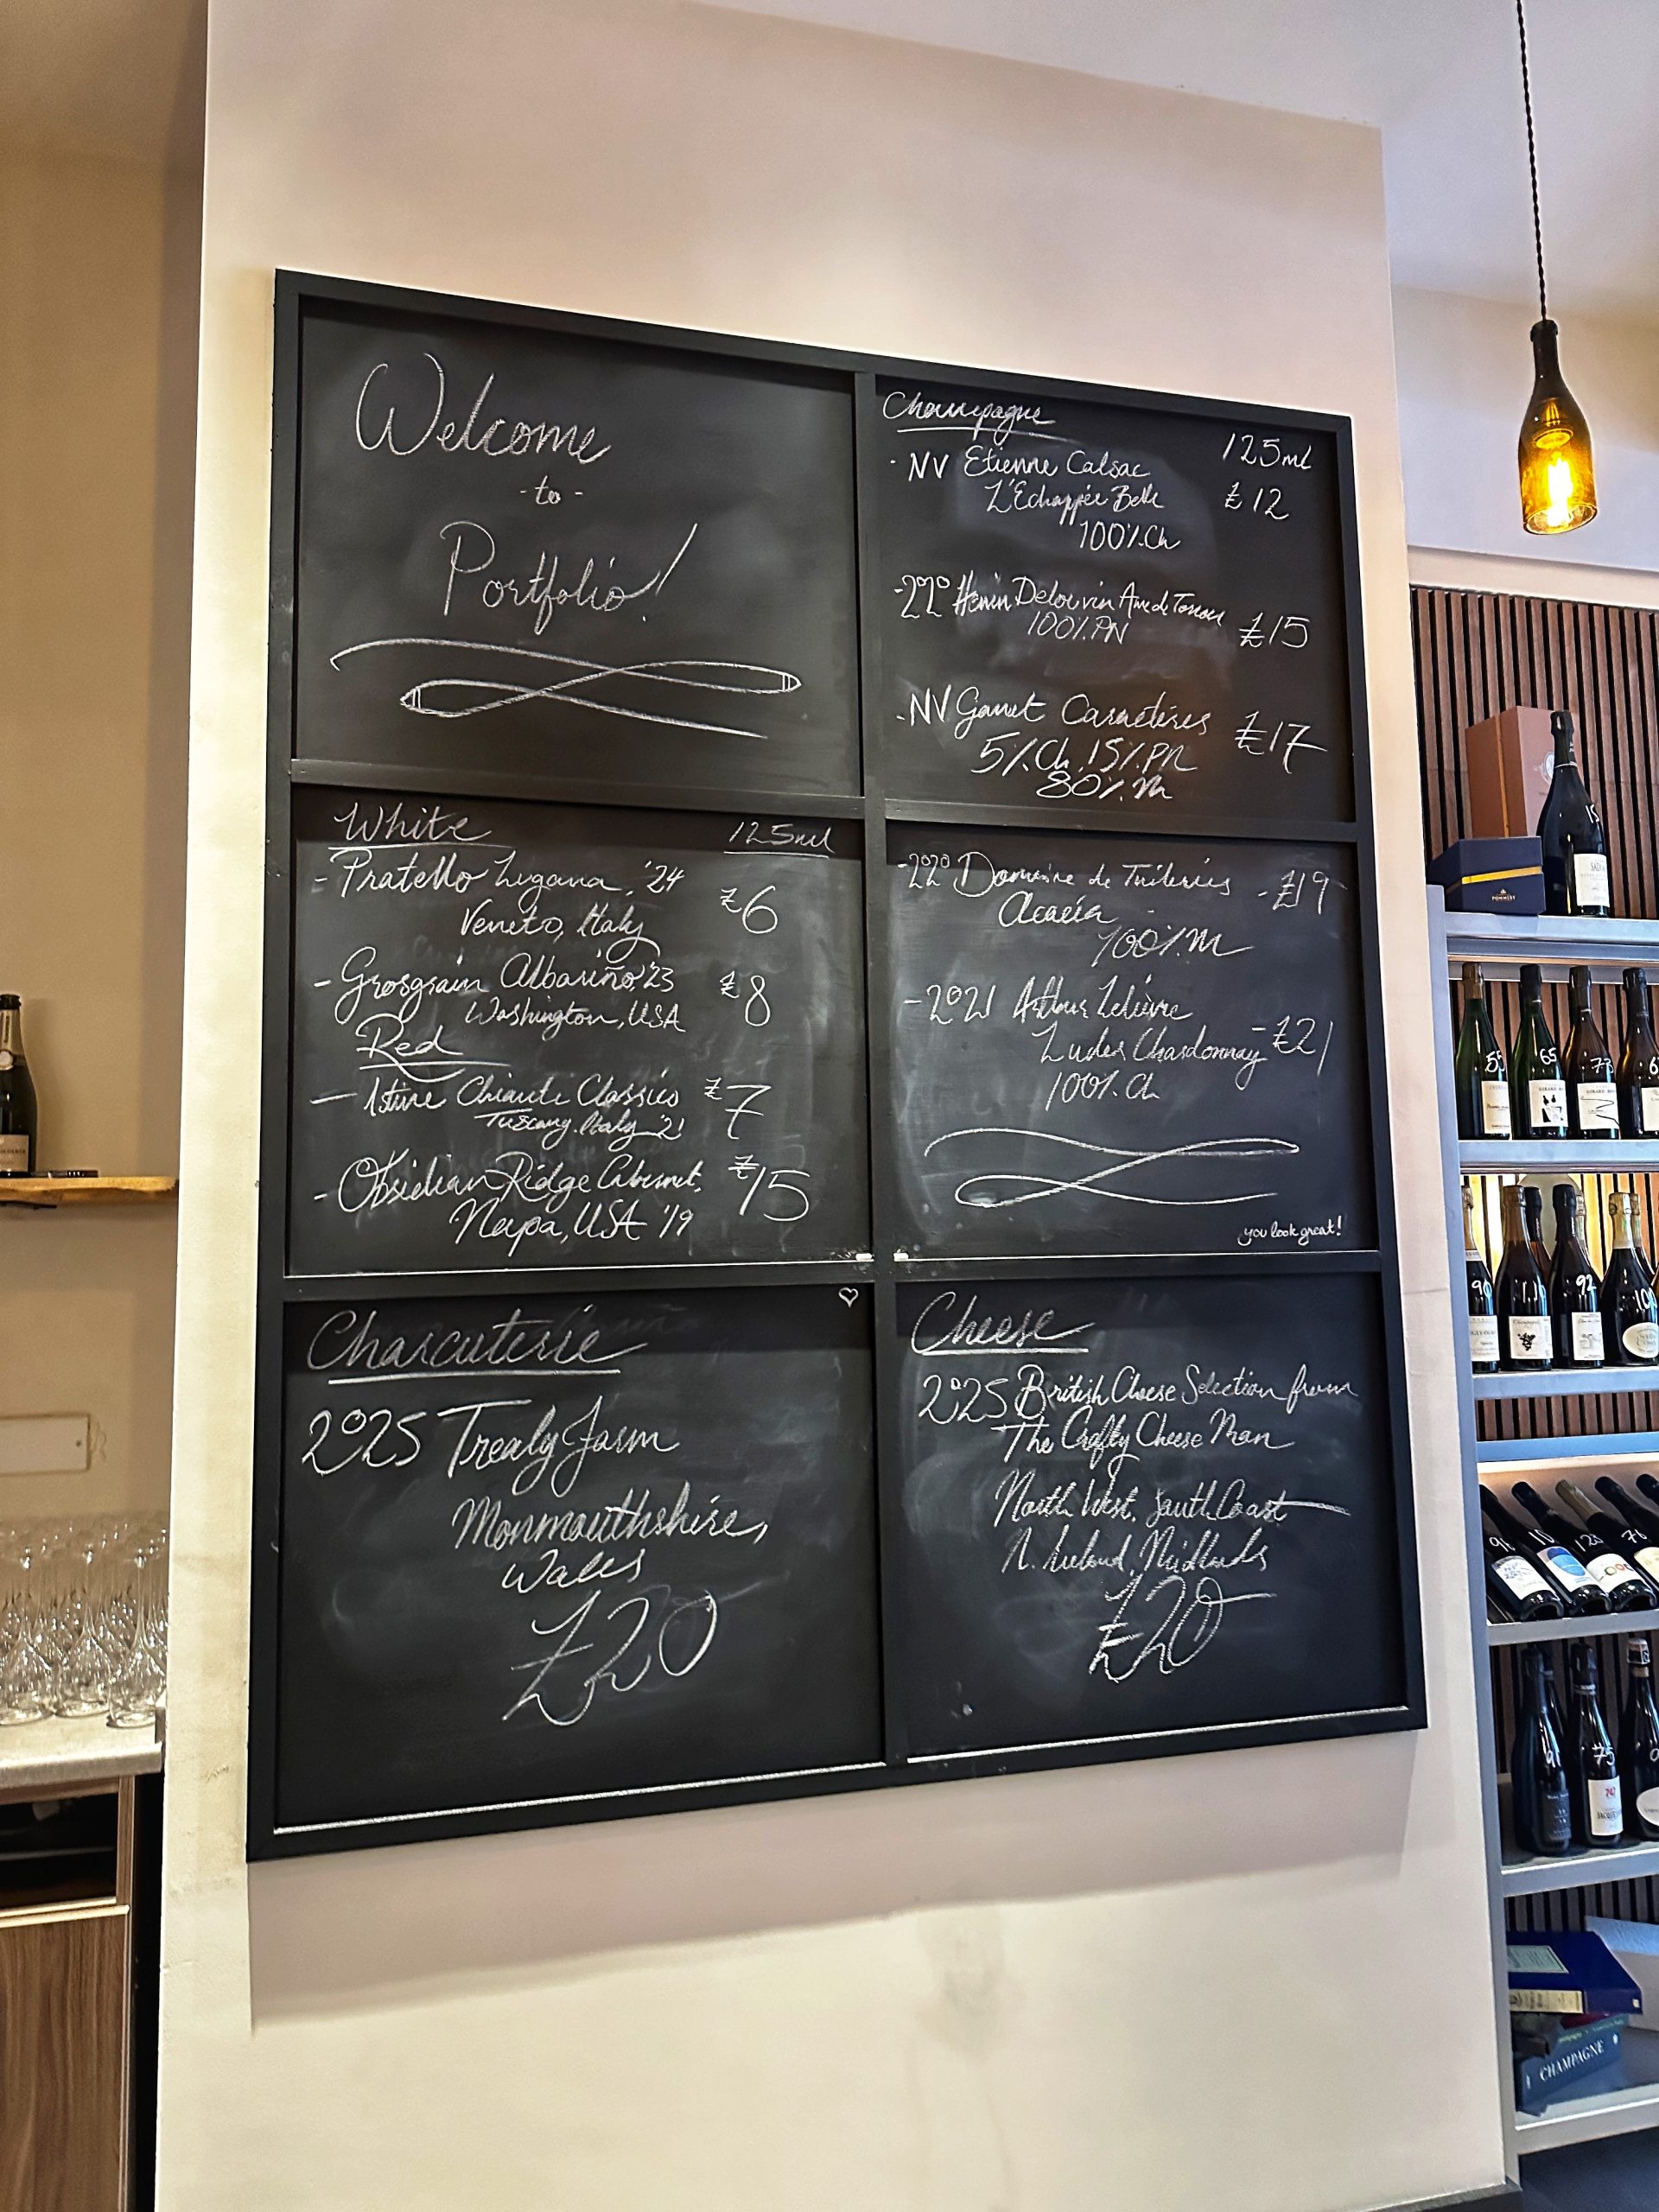 Welcome
- to -
Portfolio!
Champagne
125ml
- NV Etienne Calsac
L'Echappée Belle
£12
100% Ch
- 2020 Henin Delouvin Ame de Terroir
£15
100% PN
- NV Gamet Carnetéres
£17
5% Ch, 15% PN
80% M
White
125ml
- Pratello Lugana, '24
£6
Veneto, Italy
- Grosgrain Albariño, '23
£8
Washington, USA
Red
- Istine Chianti Classico
£7
Tuscany, Italy '21
- Obsidian Ridge Cabernet,
£15
Napa, USA '19
- 2020 Domaine de Tuileries
- £19
Acacia
100% M
- 2021 Arthur Lelièvre
Ludes Chardonnay
- £21
100% Ch
you look great!
Charcuterie
2025 Trealy Farm
Monmouthshire,
Wales
£20
Cheese
2025 British Cheese Selection from
The Crafty Cheese Man
North West, South Coast
N. Ireland, Midlands
£20
55
65
73
90
110
92
10
128
76
9
75
CHAMPAGNE